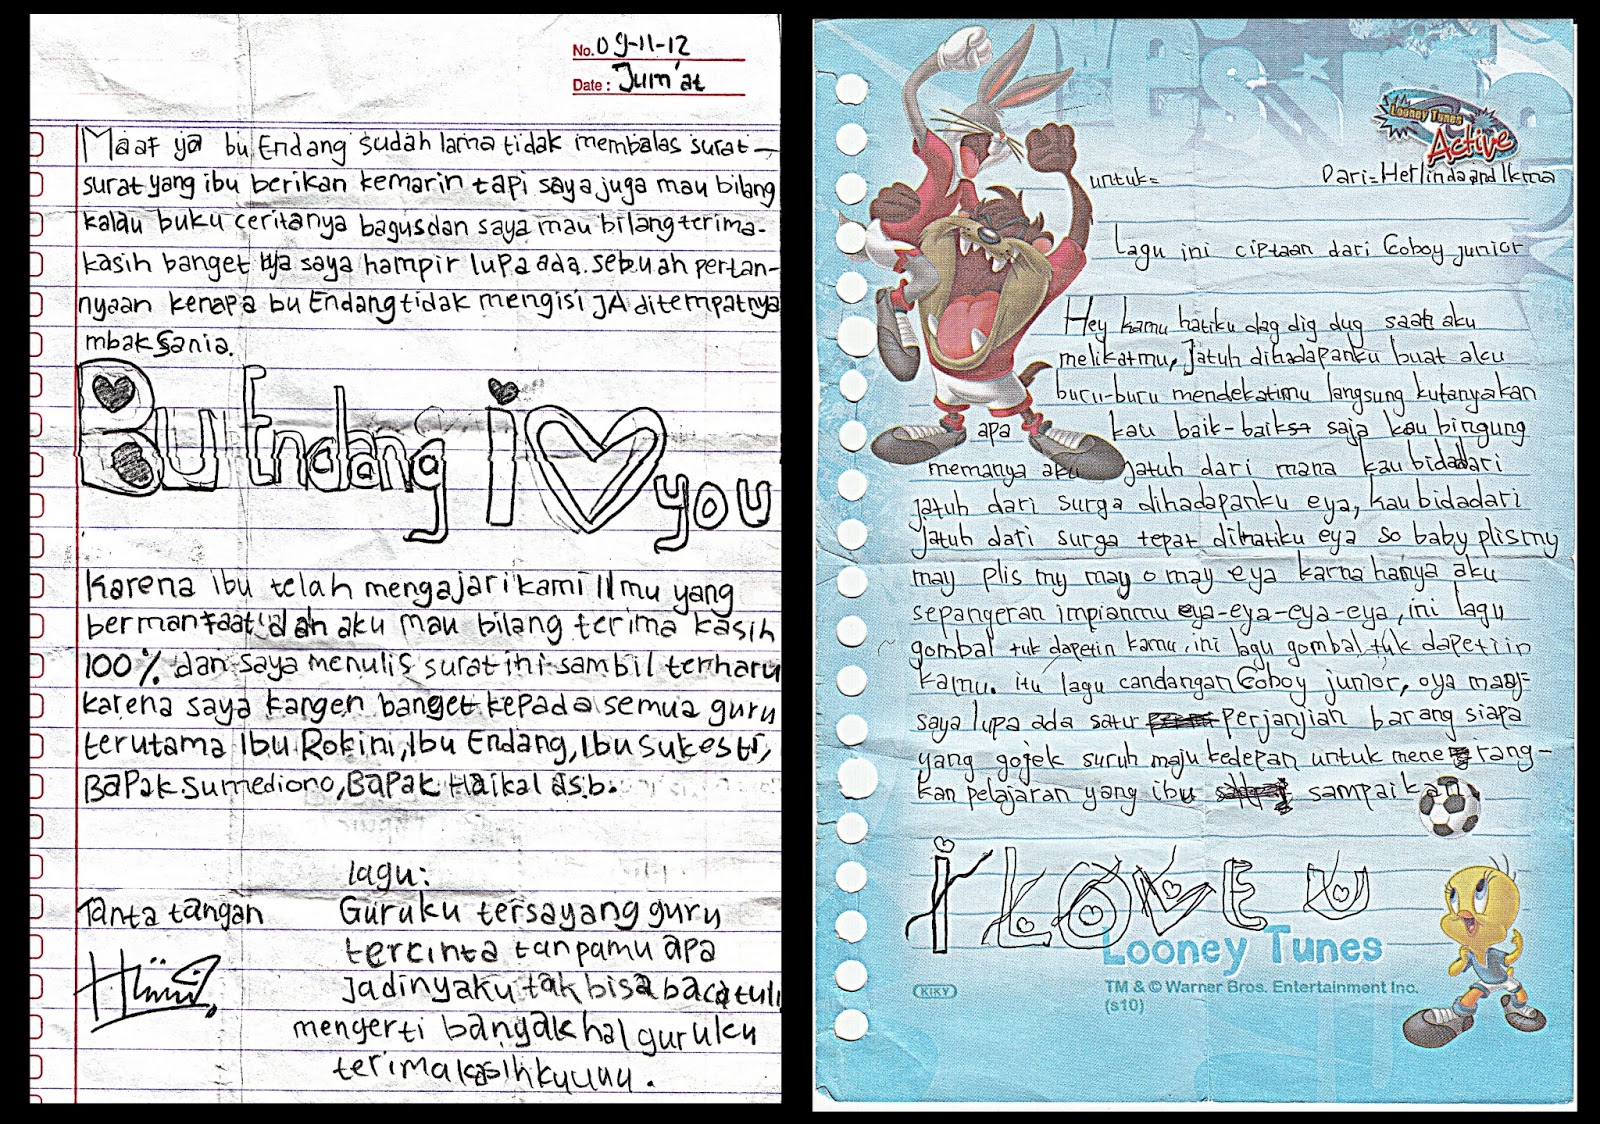 No. 09-11-12
Date : Jum'at
Maaf ya bu Endang sudah lama tidak membalas surat-
surat yang ibu berikan kemarin tapi saya juga mau bilang
kalau buku ceritanya bagus dan saya mau bilang terima-
kasih banget ya saya hampir lupa ada sebuah pertan-
nyaan kenapa bu Endang tidak mengisi JA ditempatnya
mbak Sania.
Bu Endang I you
Karena ibu telah mengajari kami Ilmu yang
bermanfaat dah aku mau bilang terima kasih
100% dan saya menulis surat ini sambil terharu
karena saya kangen banget kepada semua guru
terutama Ibu Rokini, Ibu Endang, Ibu Sukestri,
Bapak Sumediono, Bapak Haikal dsb.
lagu:
Tanta tangan
Guruku tersayang guru
tercinta tanpamu apa
jadinya aku tak bisa baca tulis
mengerti banyak hal guruku
terimakasihkuuuu.
Looney Tunes
Active
untuk=
Dari= Herlinda and Ikma
Lagu ini ciptaan dari Coboy junior
Hey kamu hatiku dag dig dug saat aku
melikatmu, Jatuh dihadapanku buat aku
buru-buru mendekatimu langsung kutanyakan
apa kau baik-baik saja kau bingung
memanya aku jatuh dari mana kau bidadari
jatuh dari surga dihadapanku eya, kau bidadari
jatuh dari surga tepat dihatiku eya so baby plis my
may plis my may o may eya karna hanya aku
sepangeran impianmu eya-eya-eya-eya, ini lagu
gombal tuk dapetin kamu, ini lagu gombal tuk dapetiin
kamu. itu lagu candangan Coboy junior, oya maaf
saya lupa ada satu perjanjian barang siapa
yang gojek suruh maju kedepan untuk menerang-
kan pelajaran yang ibu sampaikan
I LOVE U
Looney Tunes
KIKY
TM & © Warner Bros. Entertainment Inc.
(s10)